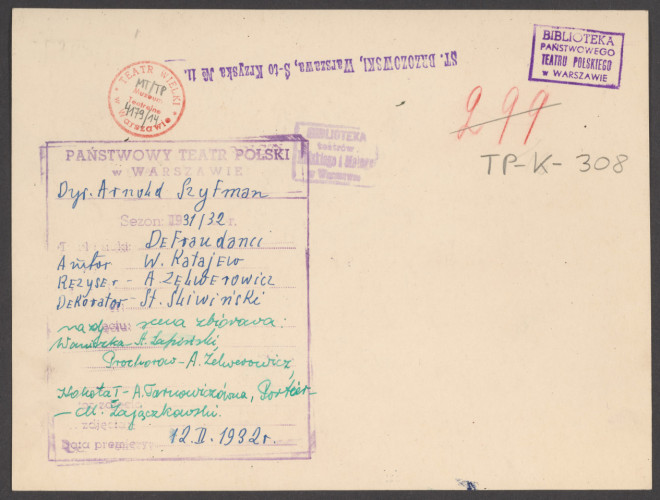 ST. BRZOZOWSKI, Warszawa, Ś-to Krzyska № 11.
BIBLIOTEKA
PAŃSTWOWEGO
TEATRU POLSKIEGO
w WARSZAWIE
TEATR WIELKI
MT/TP
Muzeum
Teatralne
4179/14
w Warszawie
299
TP-K-308
BIBLIOTEKA
teatrów
i
w Warszawie
PAŃSTWOWY TEATR POLSKI
w WARSZAWIE
Dyr. Arnold Szyfman
Sezon: 1931/32 r.
Defraudanci
Autor W. Katajew
Reżyser - A. Zelwerowicz
Dekorator St. Śliwiński
na zdjęciu: scena zbiorowa:
Waniczka - A. Łapiński,
Prochorow - A. Zelwerowicz,
Kokota I - A. Tarnowiczówna, Portier -
- M. Zajączkowski.
zdjęcia
Data premiery: 12.II.1932 r.